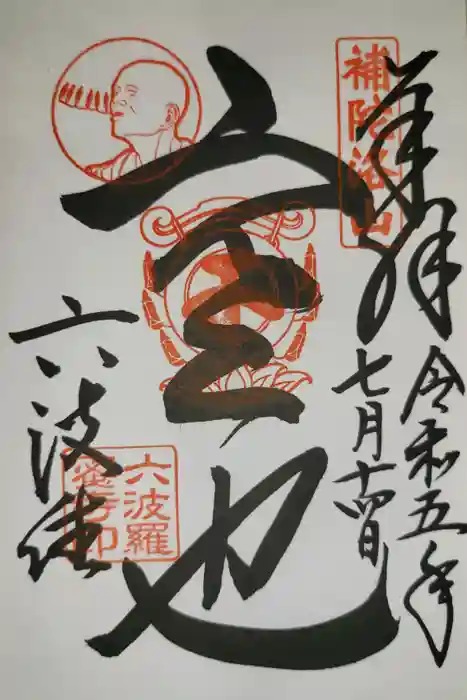 補陀洛山
奉拝
令和五年
七月十四日
空也
六波
六波羅
蜜寺印